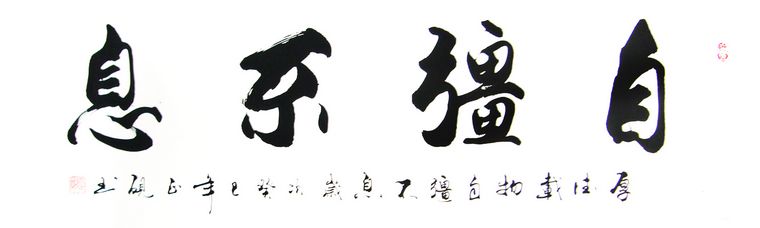 自彊不息
厚德載物自彊不息歲次癸巳年正硯书